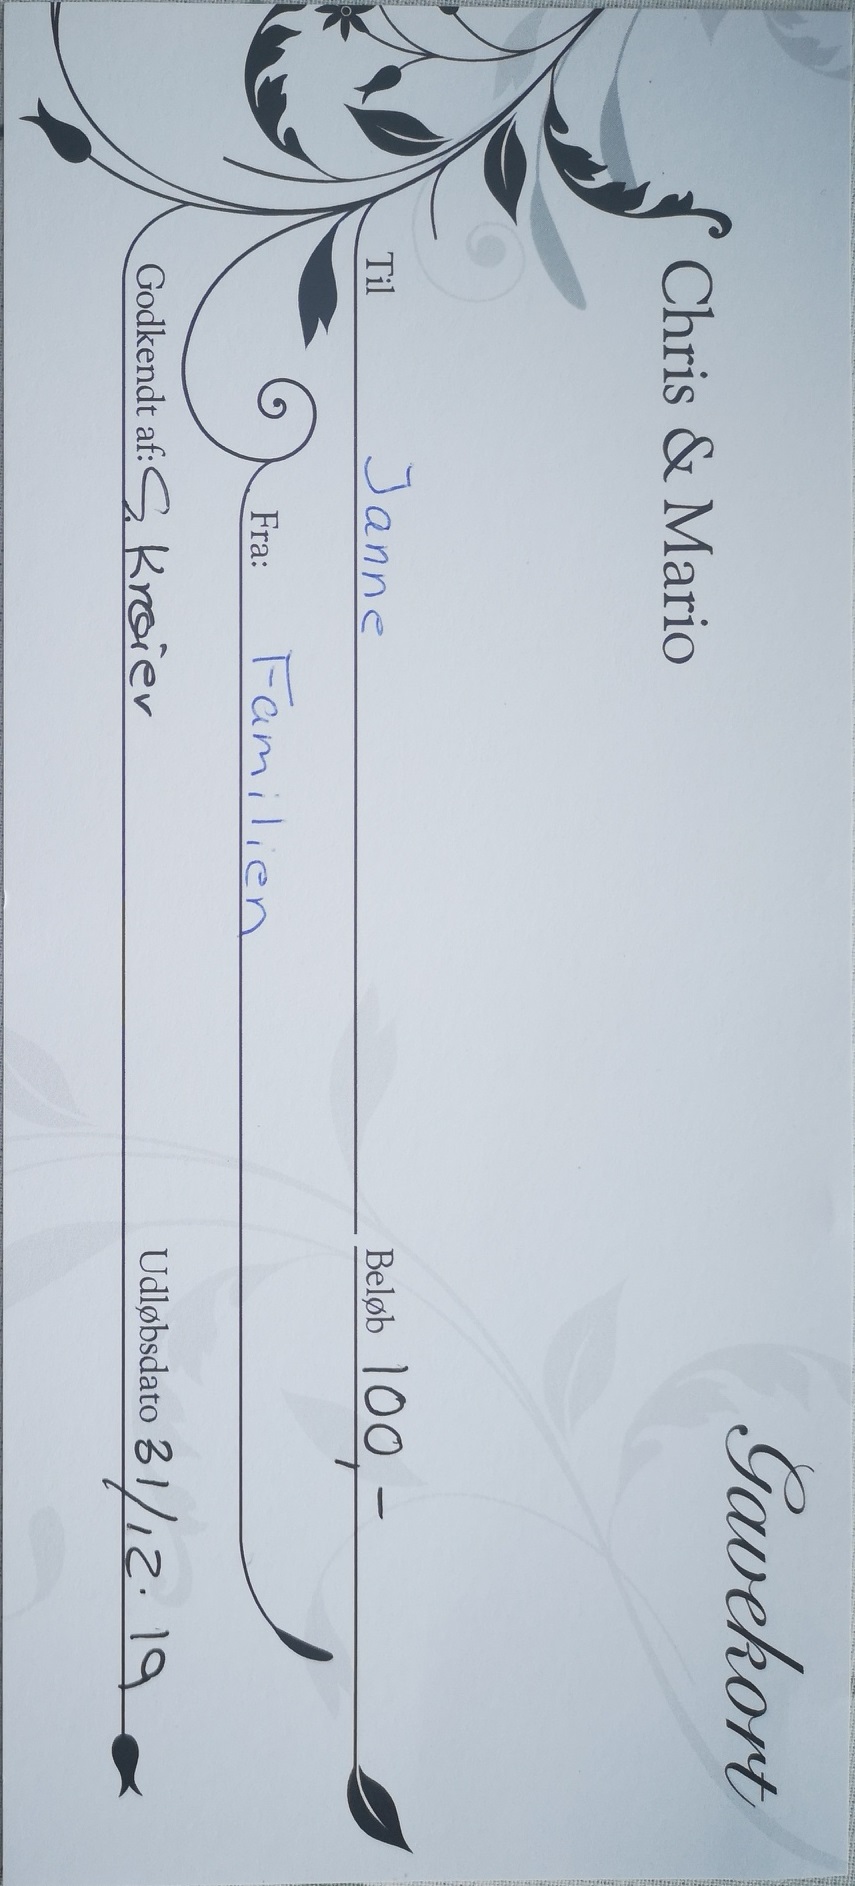 Gavekort
Chris & Mario
Til Janne Beløb 100,-
Fra: Familien
Godkendt af: S. Krøier Udløbsdato 31/12. 19